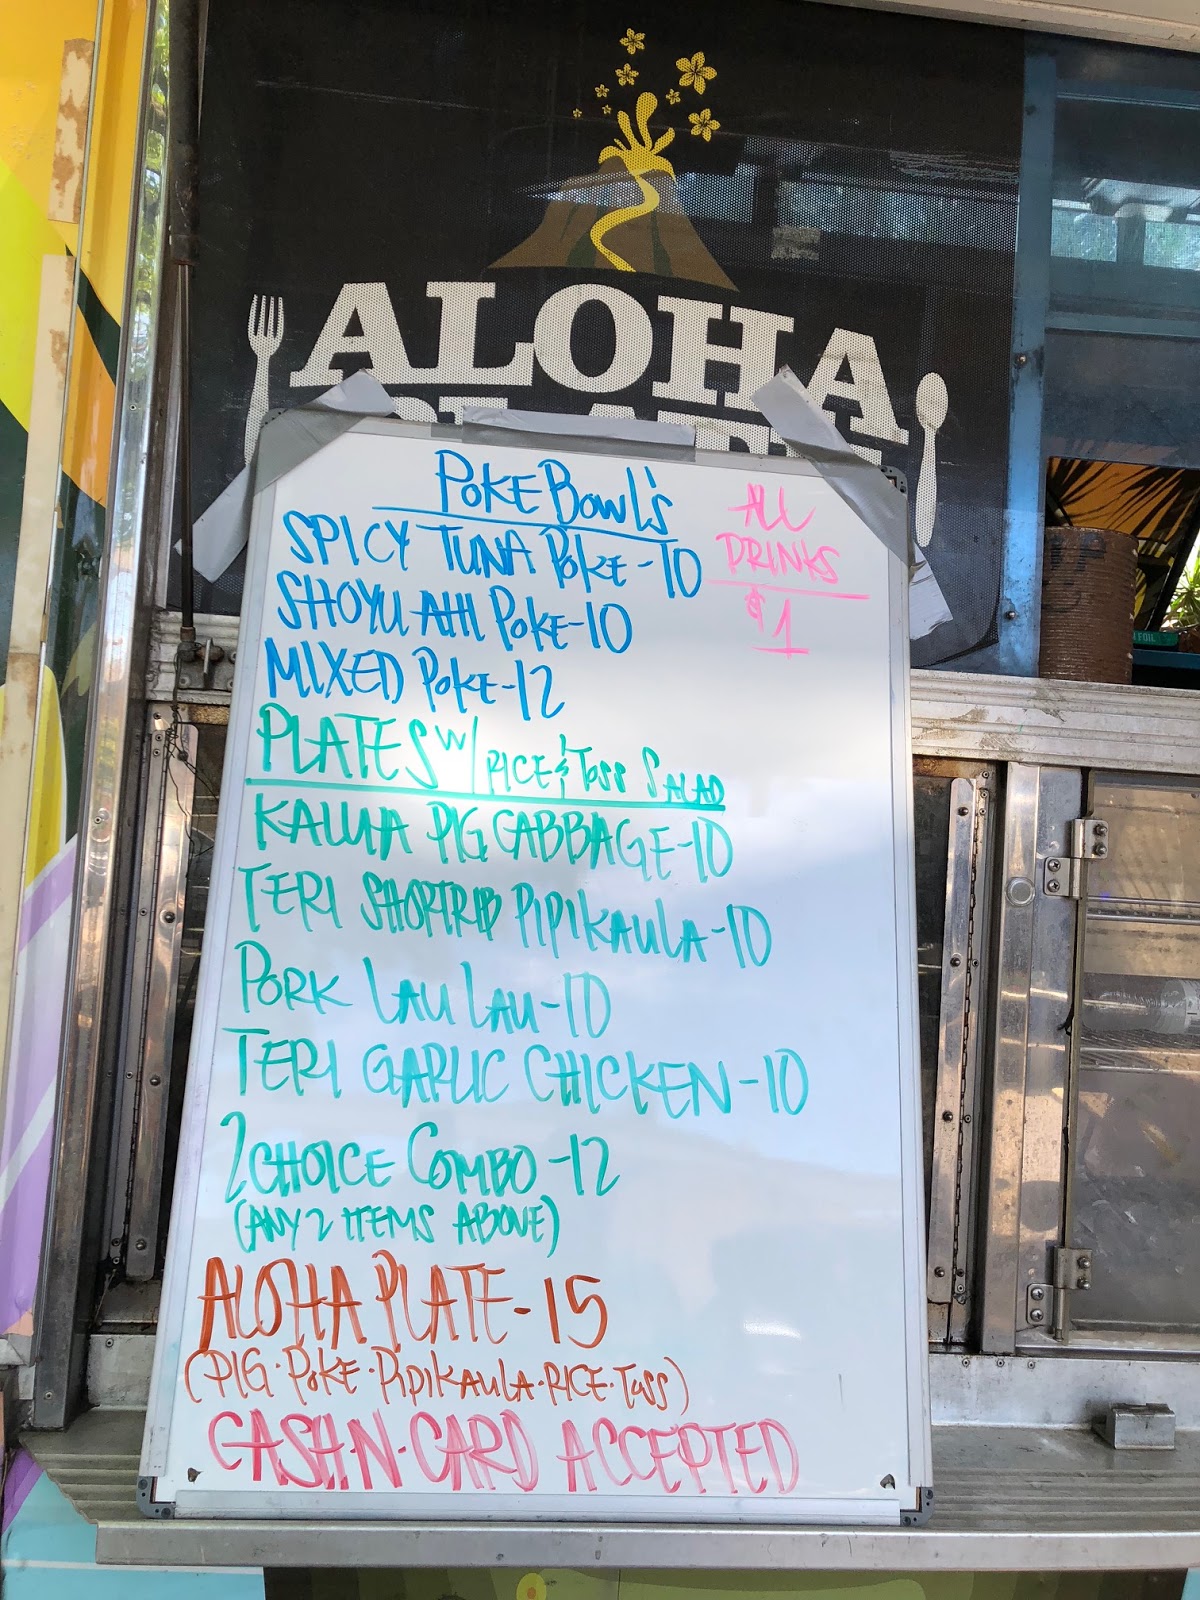 ALOHA
POKE BOWL'S
SPICY TUNA POKE - 10
SHOYU AHI POKE - 10
MIXED POKE - 12
ALL
DRINKS
$1
PLATES W/ RICE & TOSS SALAD
KALUA PIG CABBAGE - 10
TERI SHORTRIB PIPIKAULA - 10
PORK LAU LAU - 10
TERI GARLIC CHICKEN - 10
2 CHOICE COMBO - 12
(ANY 2 ITEMS ABOVE)
ALOHA PLATE - 15
(PIG · POKE · PIPIKAULA · RICE · TOSS)
CASH · N · CARD ACCEPTED
FOIL